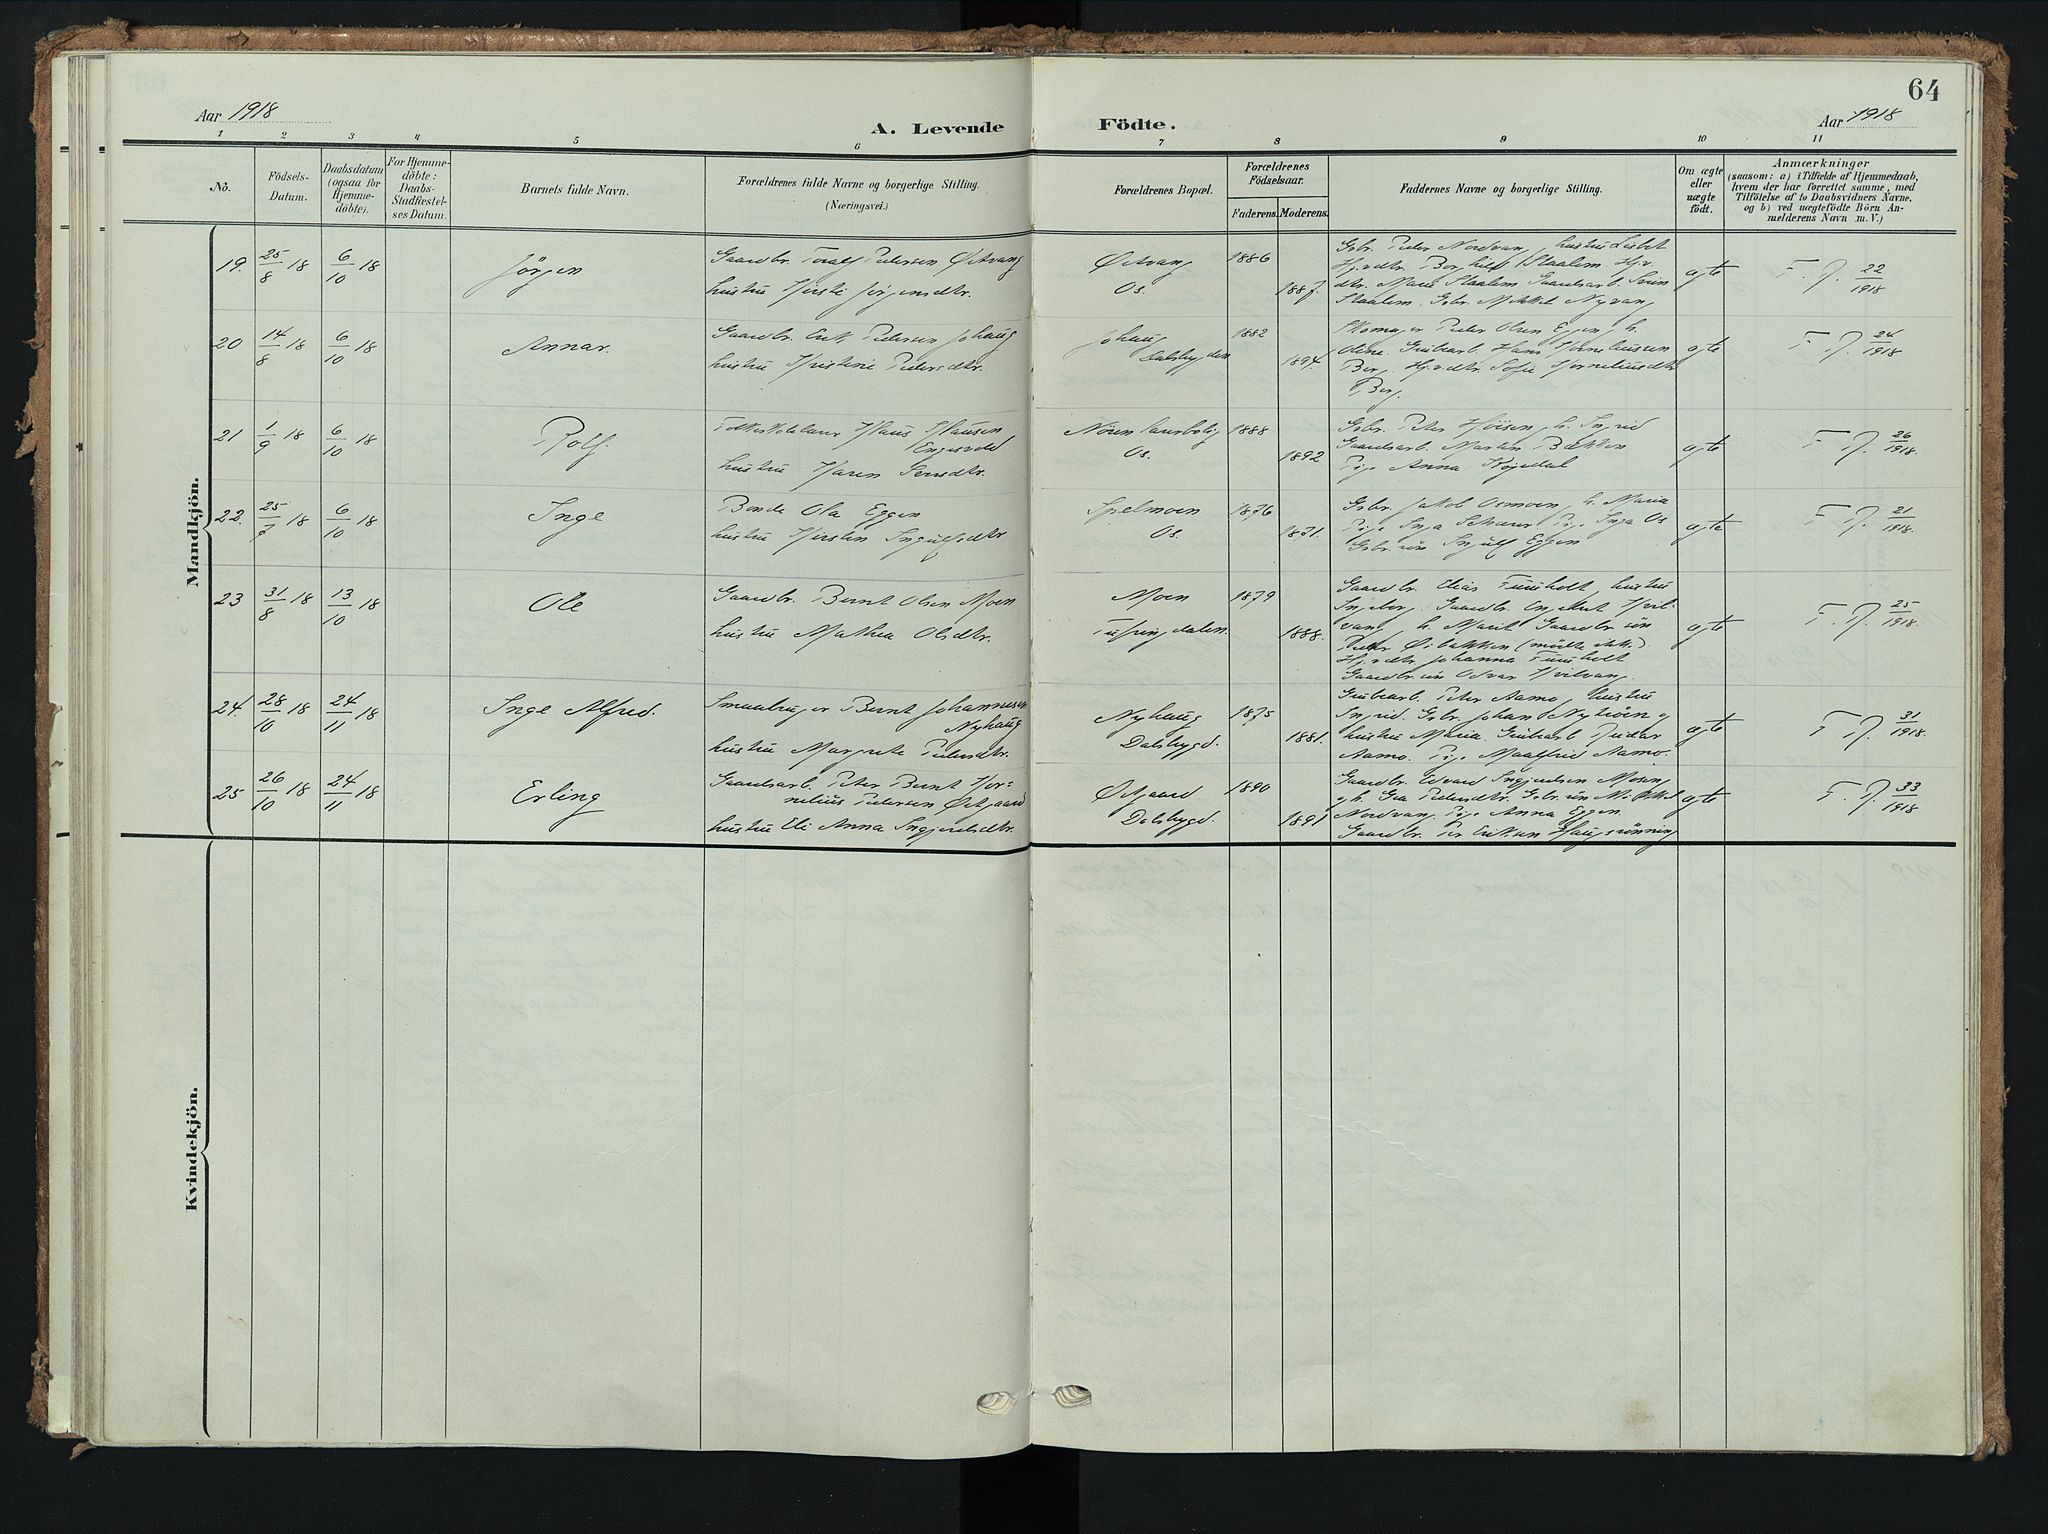 64
Aar 1918
A. Levende Födte.
Aar 1918
1 2 3 4 5 6 7 8 9 10 11
No.
Födsels-
Datum.
Daabsdatum
(ogsaa for
Hjemme-
döbte).
For Hjemme-
döbte:
Daabs-
Stadfæstel-
ses Datum.
Barnets fulde Navn.
Forældrenes fulde Navne og borgerlige Stilling.
(Næringsvei.)
Forældrenes Bopæl.
Forældrenes
Födselsaar.
Faderens. Moderens.
Faddernes Navne og borgerlige Stilling.
Om ægte
eller
uægte
födt.
Anmærkninger
(saasom: a) i Tilfælde af Hjemmedaab,
hvem der har forrettet samme, med
Tilföielse af to Daabsvidners Navne,
og b) ved uægtefödte Börn An-
melderens Navn m. V.)
Mandkjön.
19. 25/8 18 6/10 18 Jörgen
Gaardbr. Toralf Pedersen Östvang
hustru Kirsti Jörgensdtr.
Östvang
Os.
1886
1887.
Gbr. Peder Nordvang, hustru Lisbet
Hj.v.dtr. Borghild Staalem Hjv.
dtr. Marie Staalem Gaardsarb. Sven
Staalem. Gbr. Mikkel Nyvang
ægte F. P. 22/1918
20 14/8 18 6/10 18 Annar.
Gaardbr. Erik Pedersen Johaug
hustru Kristine Pedersdtr.
Johaug
Dalsbygden
1882
1894.
Skomager Peder Olsen Eggen, h.
Oline. Grubearb. Hans Korneliussen
Berg. Hj.v.dtr. Sofie Korneliusdtr.
Berg.
ægte F. P. 24/1918
21 1/9 18 6/10 18 Rolf.
Folkeskolelærer Klaus Hansen
Engesvold
hustru Karen Jensdtr.
Nören lærerbolig
Os.
1888
1892
Gbr. Peter Höisen, h. Ingrid
Gaardsarb. Martin Bækken
Pige Anna
ægte F. P. 26/1918.
22. 25/7 18 6/10 18 Inge
Bonde Ola Eggen
hustru Kirsten Ingulfsdtr
Spelmoen
Os.
1876
1871.
Gbr. Jakob Osmoen, h. Maria
Pige Inga Pige Inga Os
Gbr.sön Ingulf Eggen
ægte F. P. 21/1918.
23 31/8 18 13/10 18 Ole
Gaardbr. Bernt Olsen Moen
hustru Mathea Olsdtr.
Moen
Tufsingdalen.
1879
1888.
Gaardbr. Elias Furuholt, hustru
Ingeborg. Gaardbr. Engebret Kvil-
vang, h. Marit Gaardbr.sön
Peder Öibakken (mödte ikke).
Hj.v.dtr. Johanna Furuholt
Gaardbr.sön Odvar Kvilvang.
ægte F. P. 25/1918.
24. 28/10 18 24/11 18 Inge Alfred.
Smaabruger Bernt Johannesen
Nyhaug
hustru Margrete Pedersdtr.
Nyhaug
Dalsbygd.
1875
1881.
Grubearb. Peter Aamo, hustru
Ingrid. Gbr. Johan Nytröen og
hustru Maria. Grubearb. Peder
Aamo. Pige Maalfrid Aamo.
ægte F. P. 31/1918.
25 26/10 18 24/11 18 Erling
Gaardsarb. Peter Bernt Kor-
nelius Pedersen Östgaard
hustru Eli Anna Ingebretsdtr.
Östgaard
Dalsbygd.
1890
1891
Gaardbr. Edvard Ingebretsen Mosen
og h. Gea Pedersdtr. Gbr.sön Mikkel
Nordvang. Pige Anna Eggen.
Gaardbr. Per Eriksen Haugrönning
ægte F. P. 33/1918
Kvindekjön.